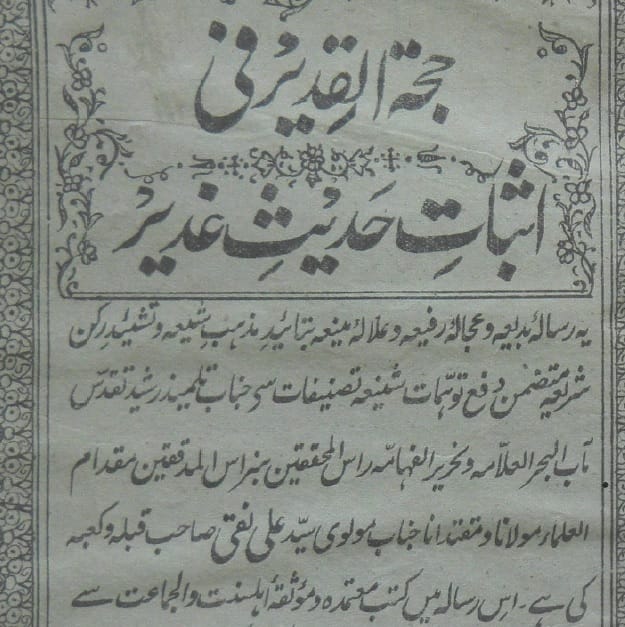 حجۃ القدیرُ فی
اثباتِ حَدیُثِ غدیرُ
یہ رسالۂ بدیعہ و عجالۂ رفیعہ و علالۂ منیعہ بتائیدِ مذہبِ شیعہ و تشئیدِ رکن
شریعہ متضمن دفع توہّمات شنیعہ تصنیفات سی جناب تلمیذ رشید تقدّس
مآب البحر العلّامہ و نحریر الفہامّہ راس المحققین نبراس المدققین مقدام
العلماء مولانا و مقتدانا جناب مولوی سیّد علی نقی صاحب قبلہ و کعبہ
کی ہے۔ اس رسالہ میں کتب معتمدہ و موثقۂ اہلسنت والجماعت سے